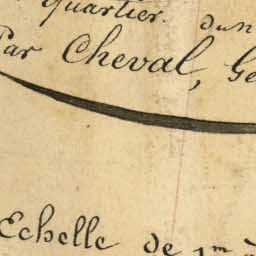 quartier. dun
Par Cheval, Ge
Echelle de 1m à